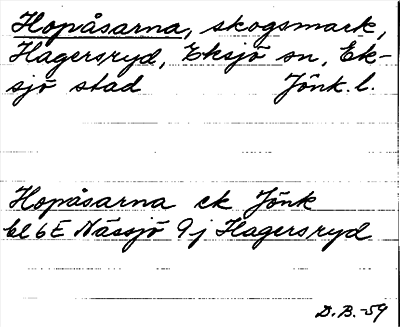 Hopåsarna, skogsmark,
Hagersryd, Eksjö sn, Ek-
sjö stad Jönk. l.
Hopåsarna ek Jönk
bl 6E Nässjö 9j Hagersryd
D.B.-59